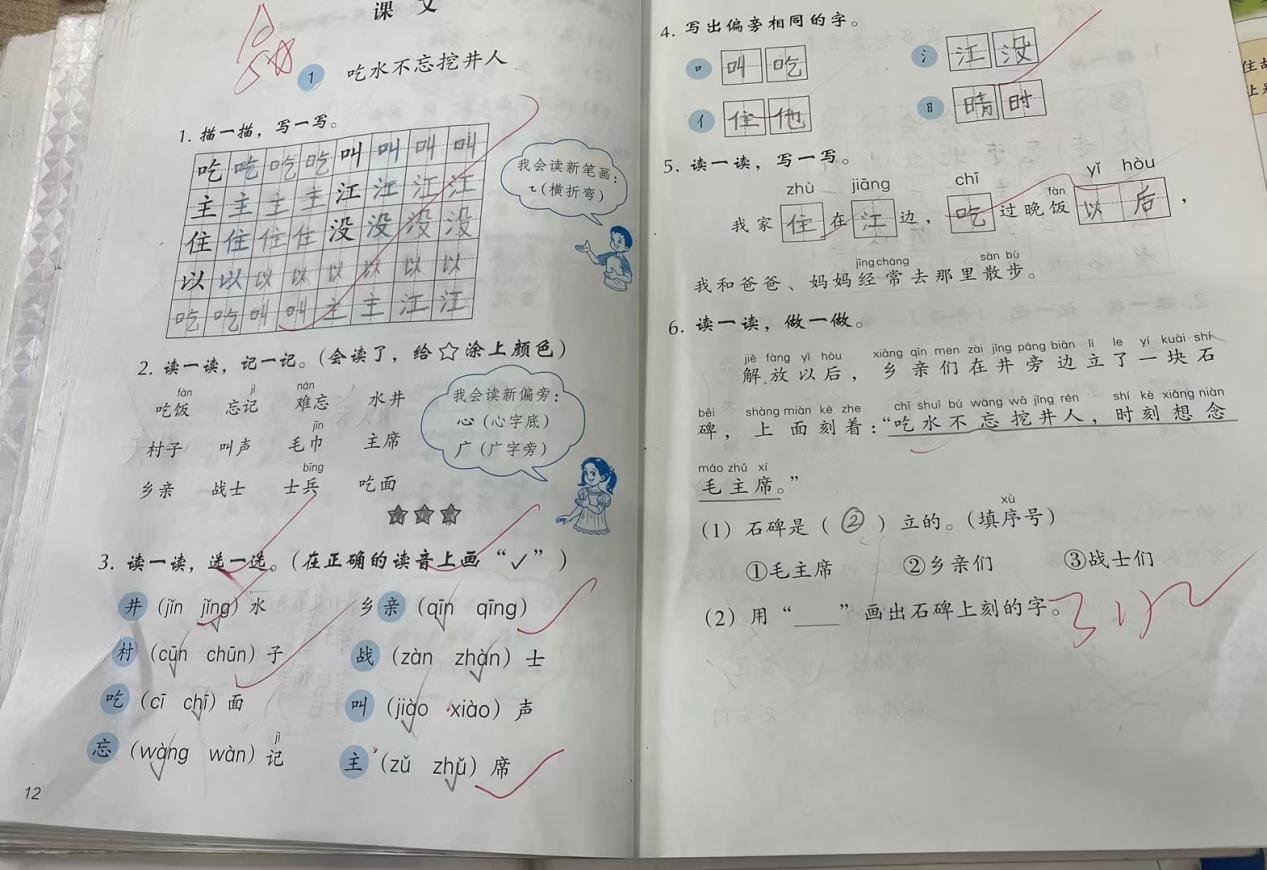 课 文
1 吃水不忘挖井人
1. 描一描，写一写。
吃 吃 吃 吃 叫 叫 叫 叫
主 主 主 主 江 江 江 江
住 住 住 住 没 没 没 没
以 以 以 以 以 以 以 以
吃 吃 叫 叫 主 主 江 江
我会读新笔画：
㇍(横折弯)
2. 读一读，记一记。(会读了，给☆涂上颜色)
fàn jì nán
吃饭 忘记 难忘 水井
jīn
村子 叫声 毛巾 主席
bīng
乡亲 战士 士兵 吃面
我会读新偏旁：
心(心字底)
广(广字旁)
3. 读一读，选一选。(在正确的读音上画“✓”)
井 (jǐn jǐng) 水 乡亲 (qīn qīng)
村 (cūn chūn) 子 战 (zàn zhàn) 士
吃 (cī chī) 面 叫 (jiào xiào) 声
jì
忘 (wàng wàn) 记 主 (zǔ zhǔ) 席
12
4. 写出偏旁相同的字。
口 叫 吃 氵 江 没
亻 住 他 日 晴 时
5. 读一读，写一写。
zhù jiāng chī fàn yǐ hòu
我家 住 在 江 边，吃 过晚饭 以 后，
jīng cháng sàn bù
我和爸爸、妈妈经常去那里散步。
6. 读一读，做一做。
jiě fàng yǐ hòu xiāng qīn men zài jǐng páng biān lì le yí kuài shí
解放以后，乡亲们在井旁边立了一块石
bēi shàng miàn kè zhe chī shuǐ bú wàng wā jǐng rén shí kè xiǎng niàn
碑，上面刻着：“吃水不忘挖井人，时刻想念
máo zhǔ xí
毛主席。”
xù
(1) 石碑是( ② )立的。(填序号)
①毛主席 ②乡亲们 ③战士们
(2) 用“____”画出石碑上刻的字。